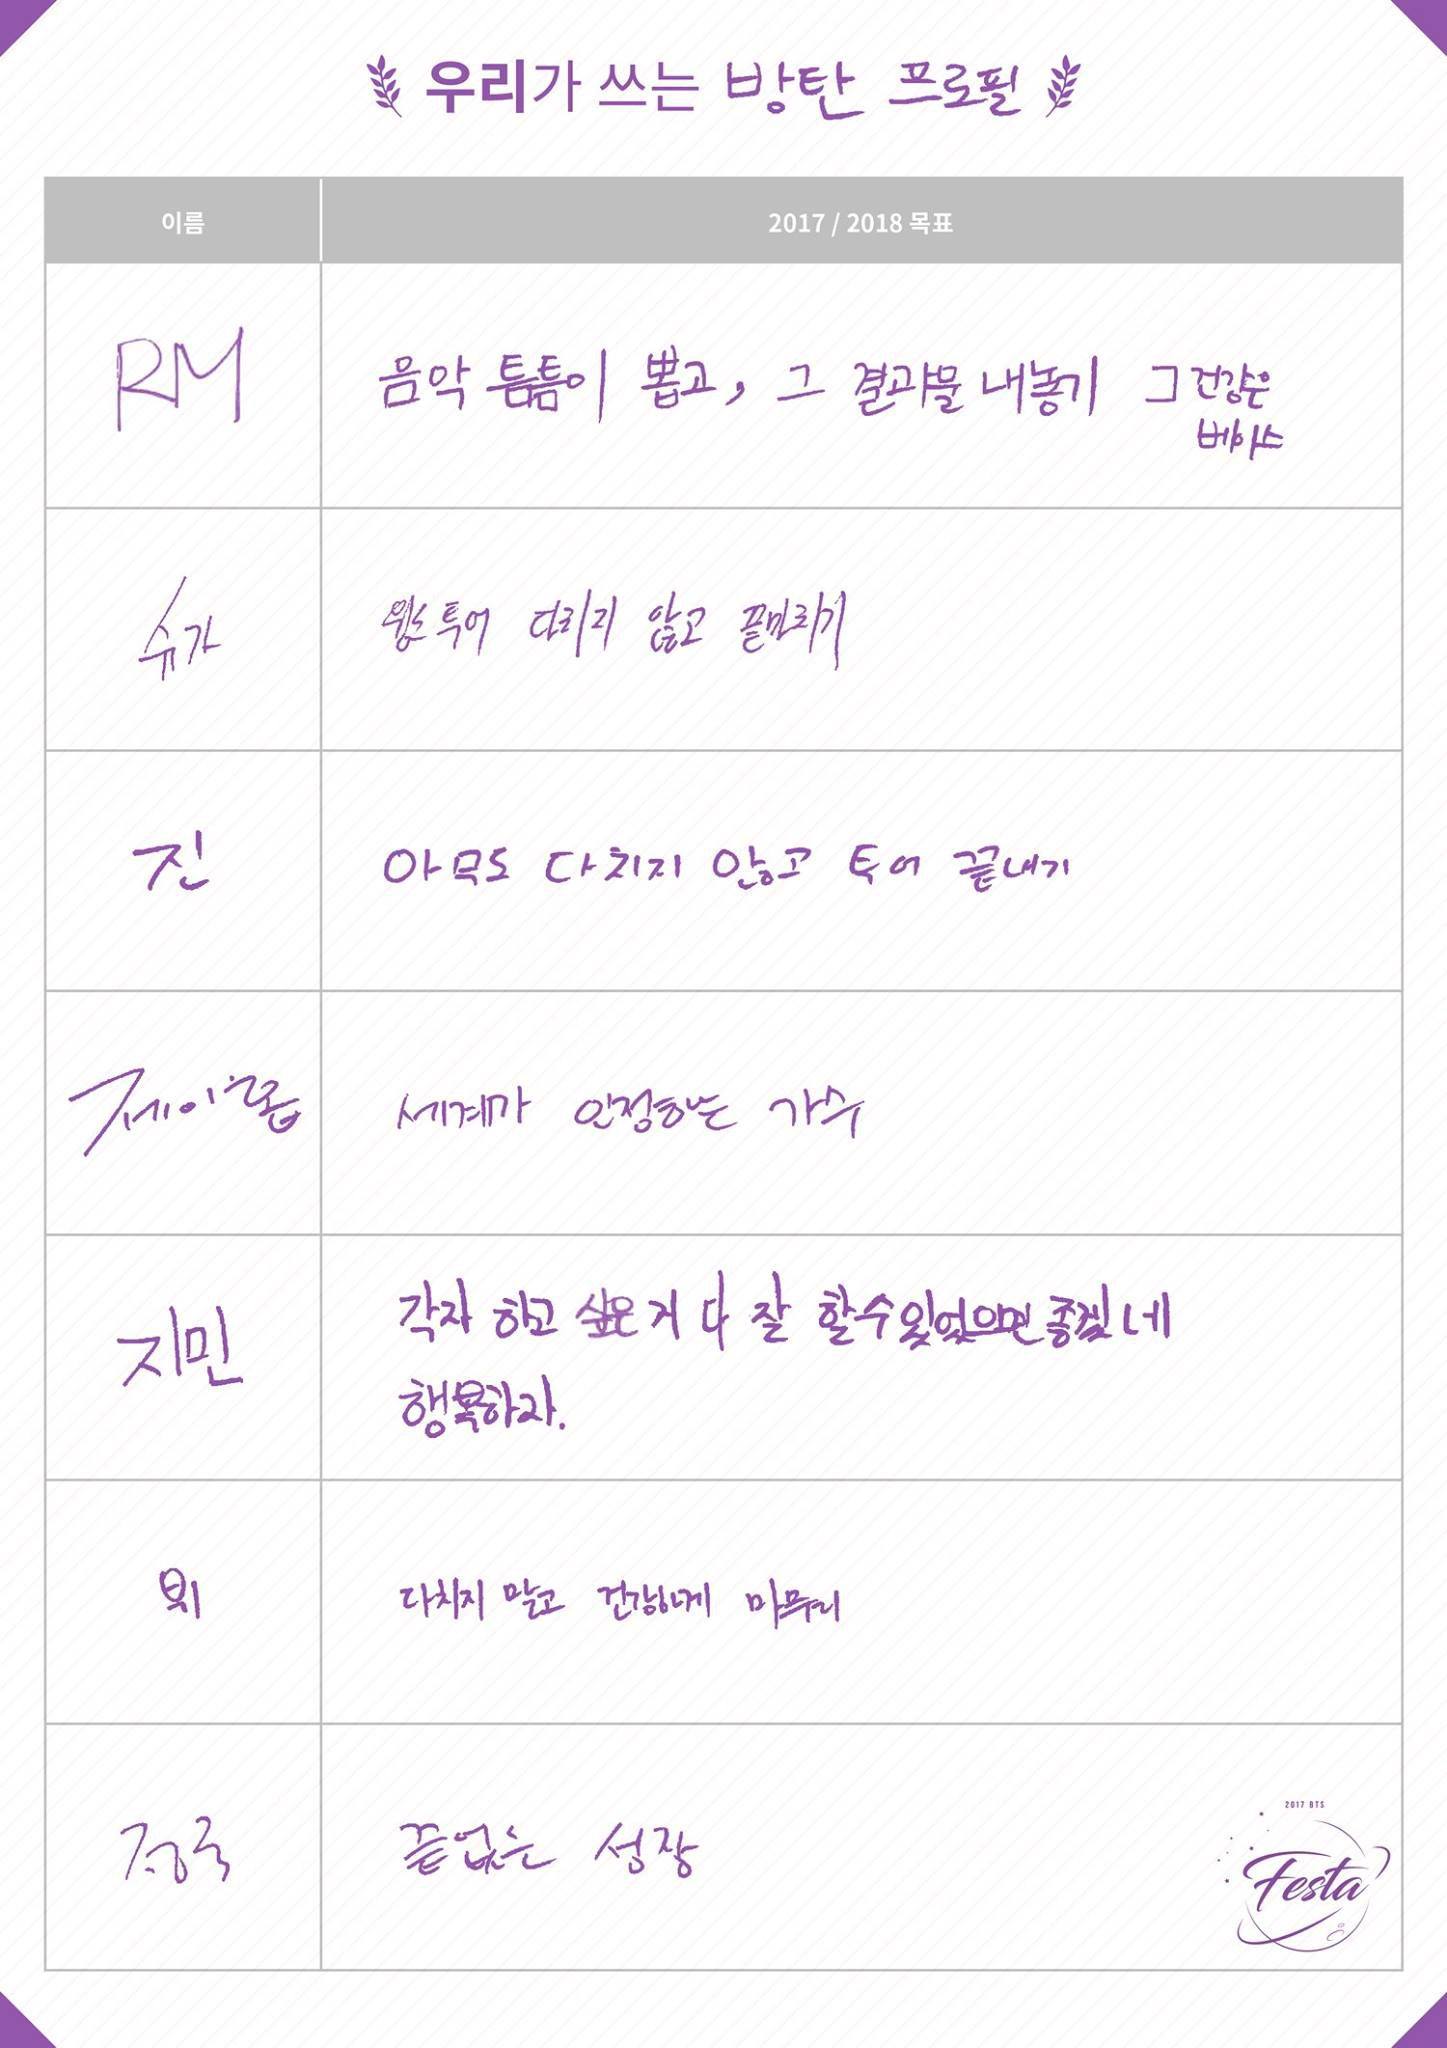 우리가 쓰는 방탄 프로필
이름
2017 / 2018 목표
RM
음악 틈틈이 뽑고, 그 결과물 내놓기 그 건강은
베이스
슈가
투어 다치지 않고 끝마치기
진
아무도 다치지 않고 투어 끝내기
제이홉
세계가 인정하는 가수
지민
각자 하고 싶은 거 다 잘 할수있었으면 좋겠네
행복하자.
뷔
다치지 말고 건강하게 마무리
정국
끝없는 성장
2017 BTS
Festa